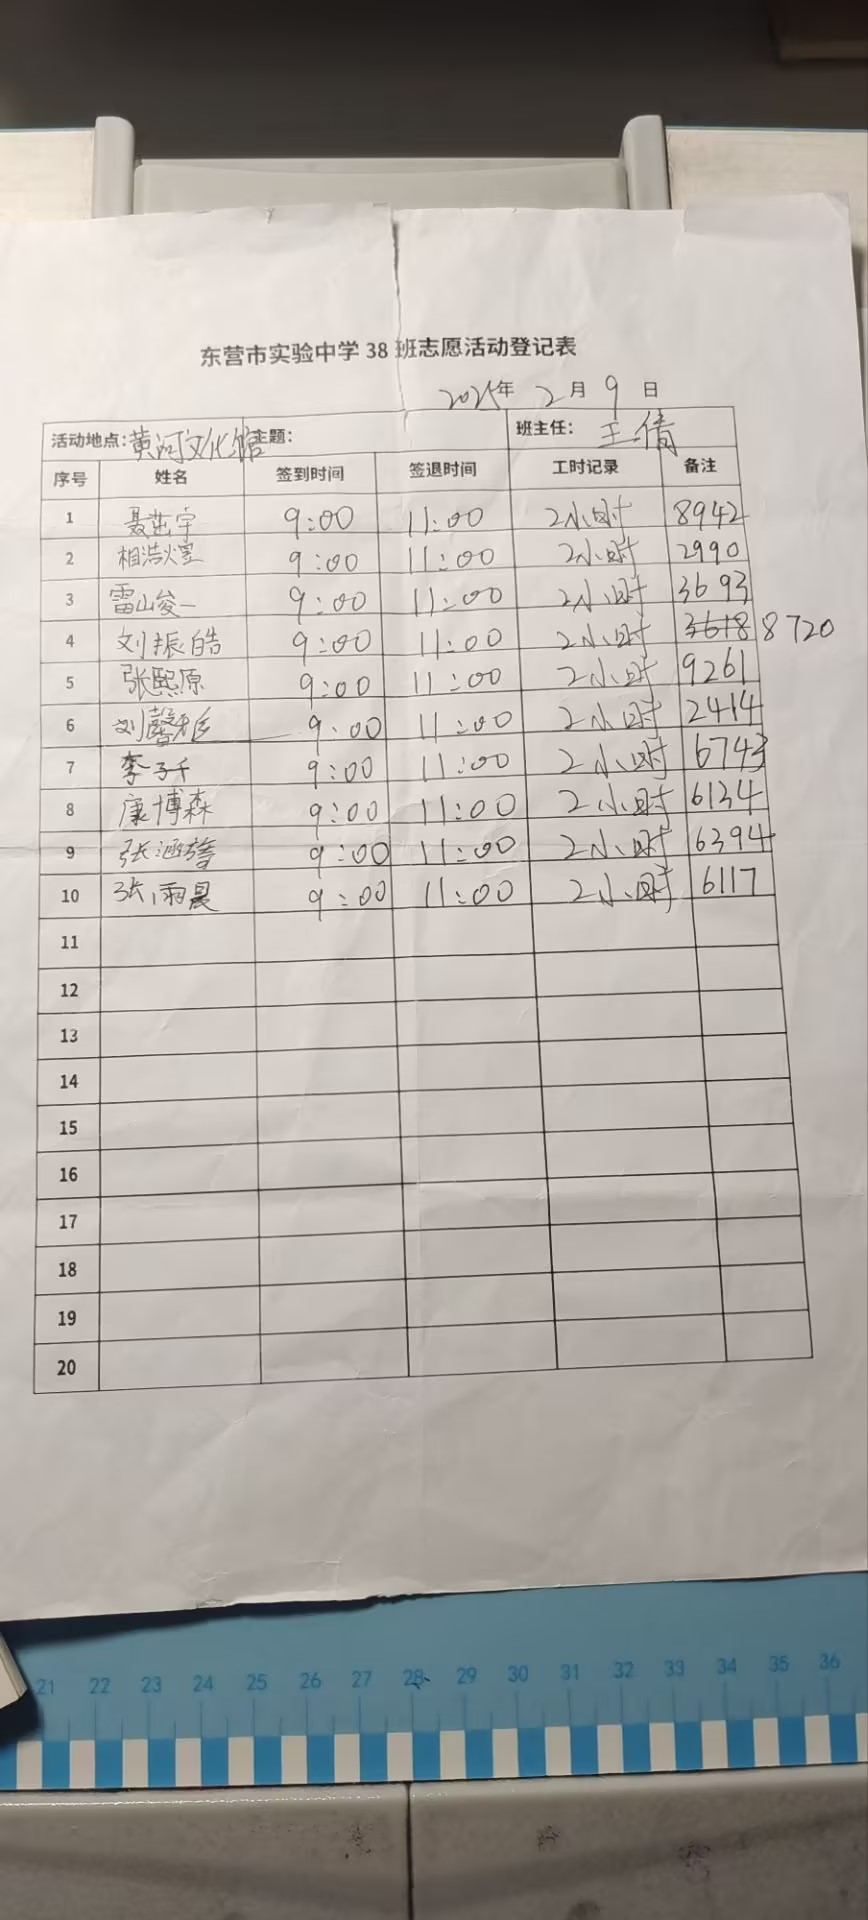 东营市实验中学 38 班志愿活动登记表
2025年 2月 9日
活动地点:黄河文化馆 主题: 班主任: 王倩
序号 姓名 签到时间 签退时间 工时记录 备注
1 聂茁宇 9:00 11:00 2小时 8942
2 相浩煜 9:00 11:00 2小时 2990
3 雷山俊一 9:00 11:00 2小时 3693
4 刘振皓 9:00 11:00 2小时 3618 8720
5 张熙原 9:00 11:00 2小时 9261
6 刘馨雅 9:00 11:00 2小时 2414
7 李子千 9:00 11:00 2小时 6743
8 康博森 9:00 11:00 2小时 6134
9 张涵 9:00 11:00 2小时 6394
10 张雨晨 9:00 11:00 2小时 6117
11
12
13
14
15
16
17
18
19
20
21 22 23 24 25 26 27 28 29 30 31 32 33 34 35 36